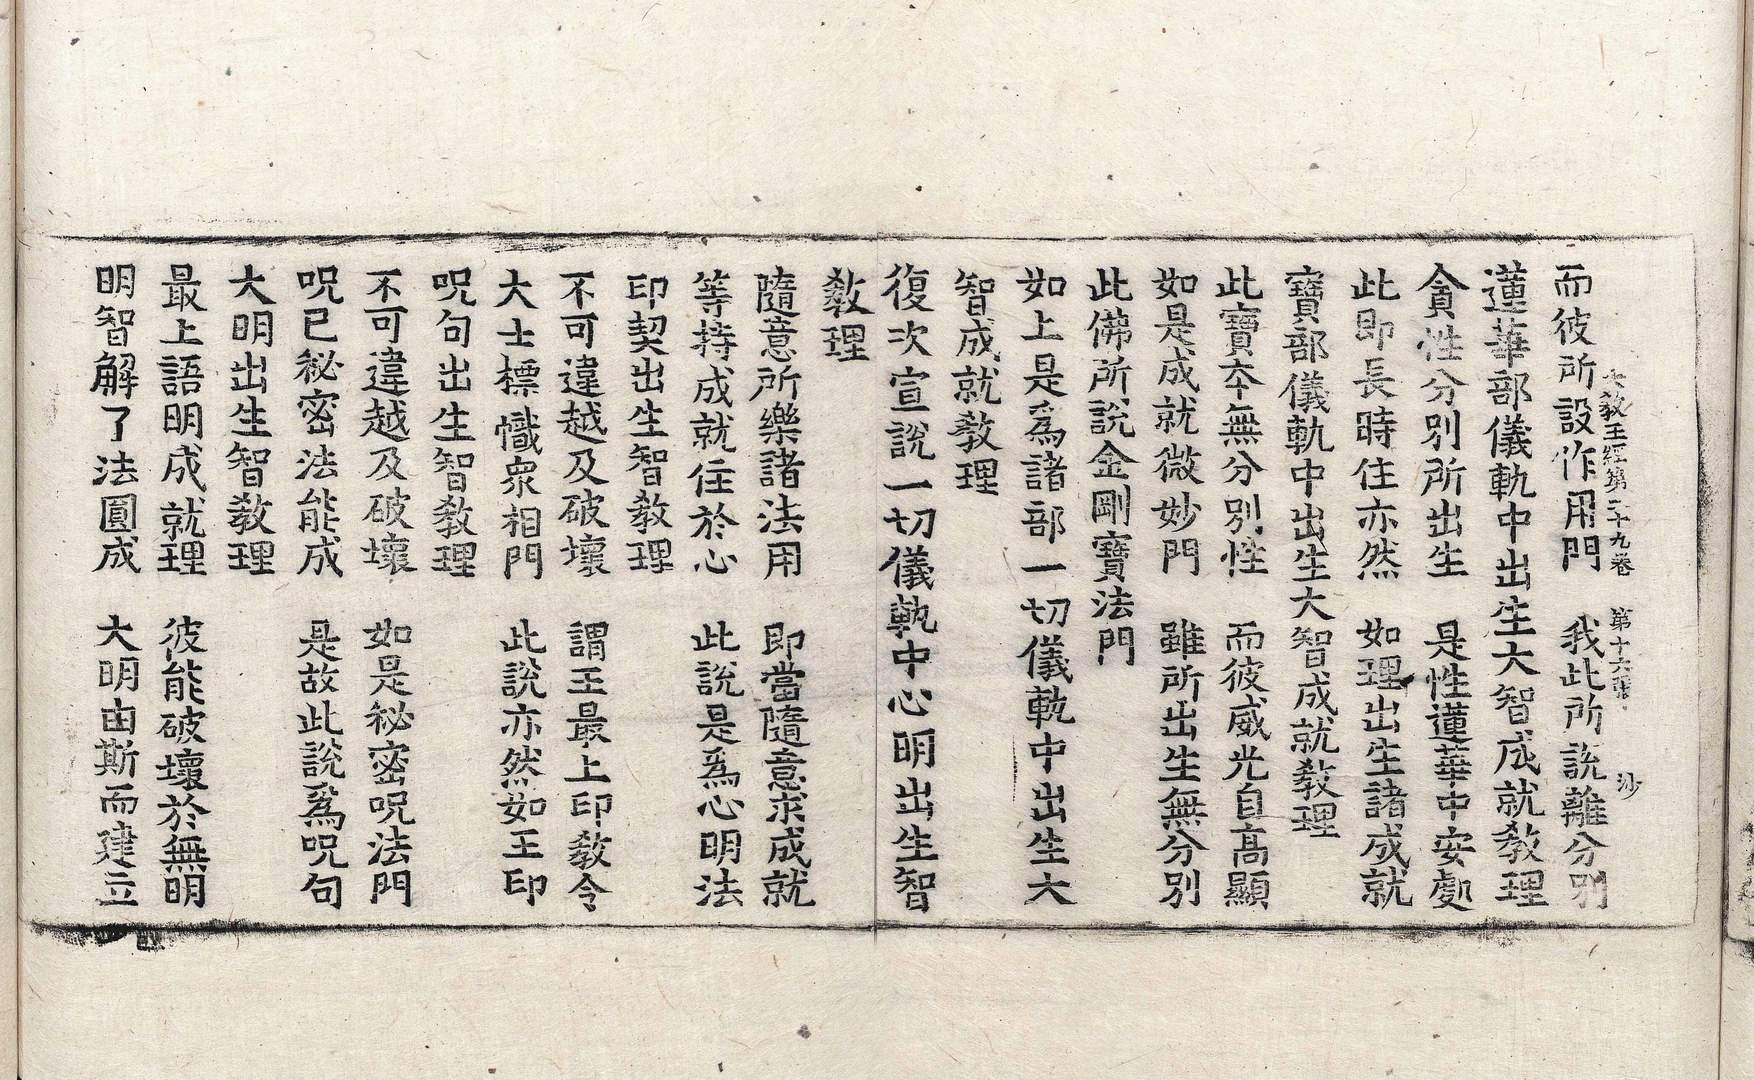 大教王經第二十九卷　第十六張　沙
而彼所設作用門　我此所說離分別
蓮華部儀軌中出生大智成就教理
貪性分別所出生　是性蓮華中安處
此即長時住亦然　如理出生諸成就
寶部儀軌中出生大智成就教理
此寶本無分別性　而彼威光自高顯
如是成就微妙門　雖所出生無分別
此佛所說金剛寶法門
如上是爲諸部一切儀軌中出生大
智成就教理
復次宣說一切儀軌中心明出生智
教理
隨意所樂諸法用　即當隨意求成就
等持成就住於心　此說是爲心明法
印契出生智教理
不可違越及破壞　謂王最上印教令
大士標幟衆相門　此說亦然如王印
呪句出生智教理
不可違越及破壞　如是秘密呪法門
呪已秘密法能成　是故此說爲呪句
大明出生智教理
最上語明成就理　彼能破壞於無明
明智解了法圓成　大明由斯而建立